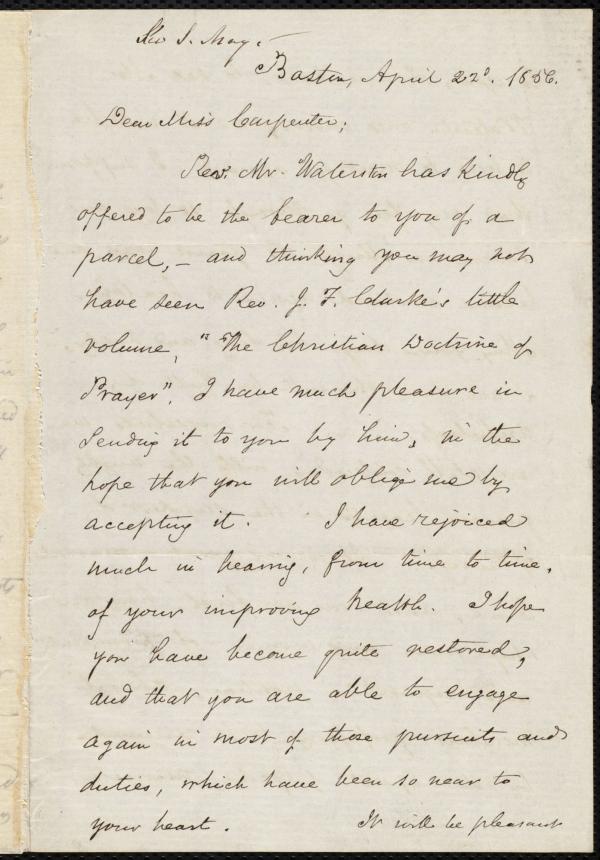 Rev S. May. Jr
Boston, April 22d. 1856.
Dear Miss Carpenter;
Rev. Mr. Waterston has kindly
offered to be the bearer to you of a
parcel, – and thinking you may not
have seen Rev. J. F. Clarke's little
volume, "The Christian Doctrine of
Prayer", I have much pleasure in
sending it to you by him, in the
hope that you will oblige me by
accepting it. I have rejoiced
much in hearing, from time to time,
of your improving health. I hope
you have become quite restored,
and that you are able to engage
again in most of those pursuits and
duties, which have been so near to
your heart. It will be pleasant